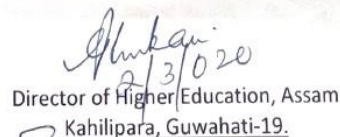 2/3/020
Director of Higher Education, Assam
Kahilipara, Guwahati-19.